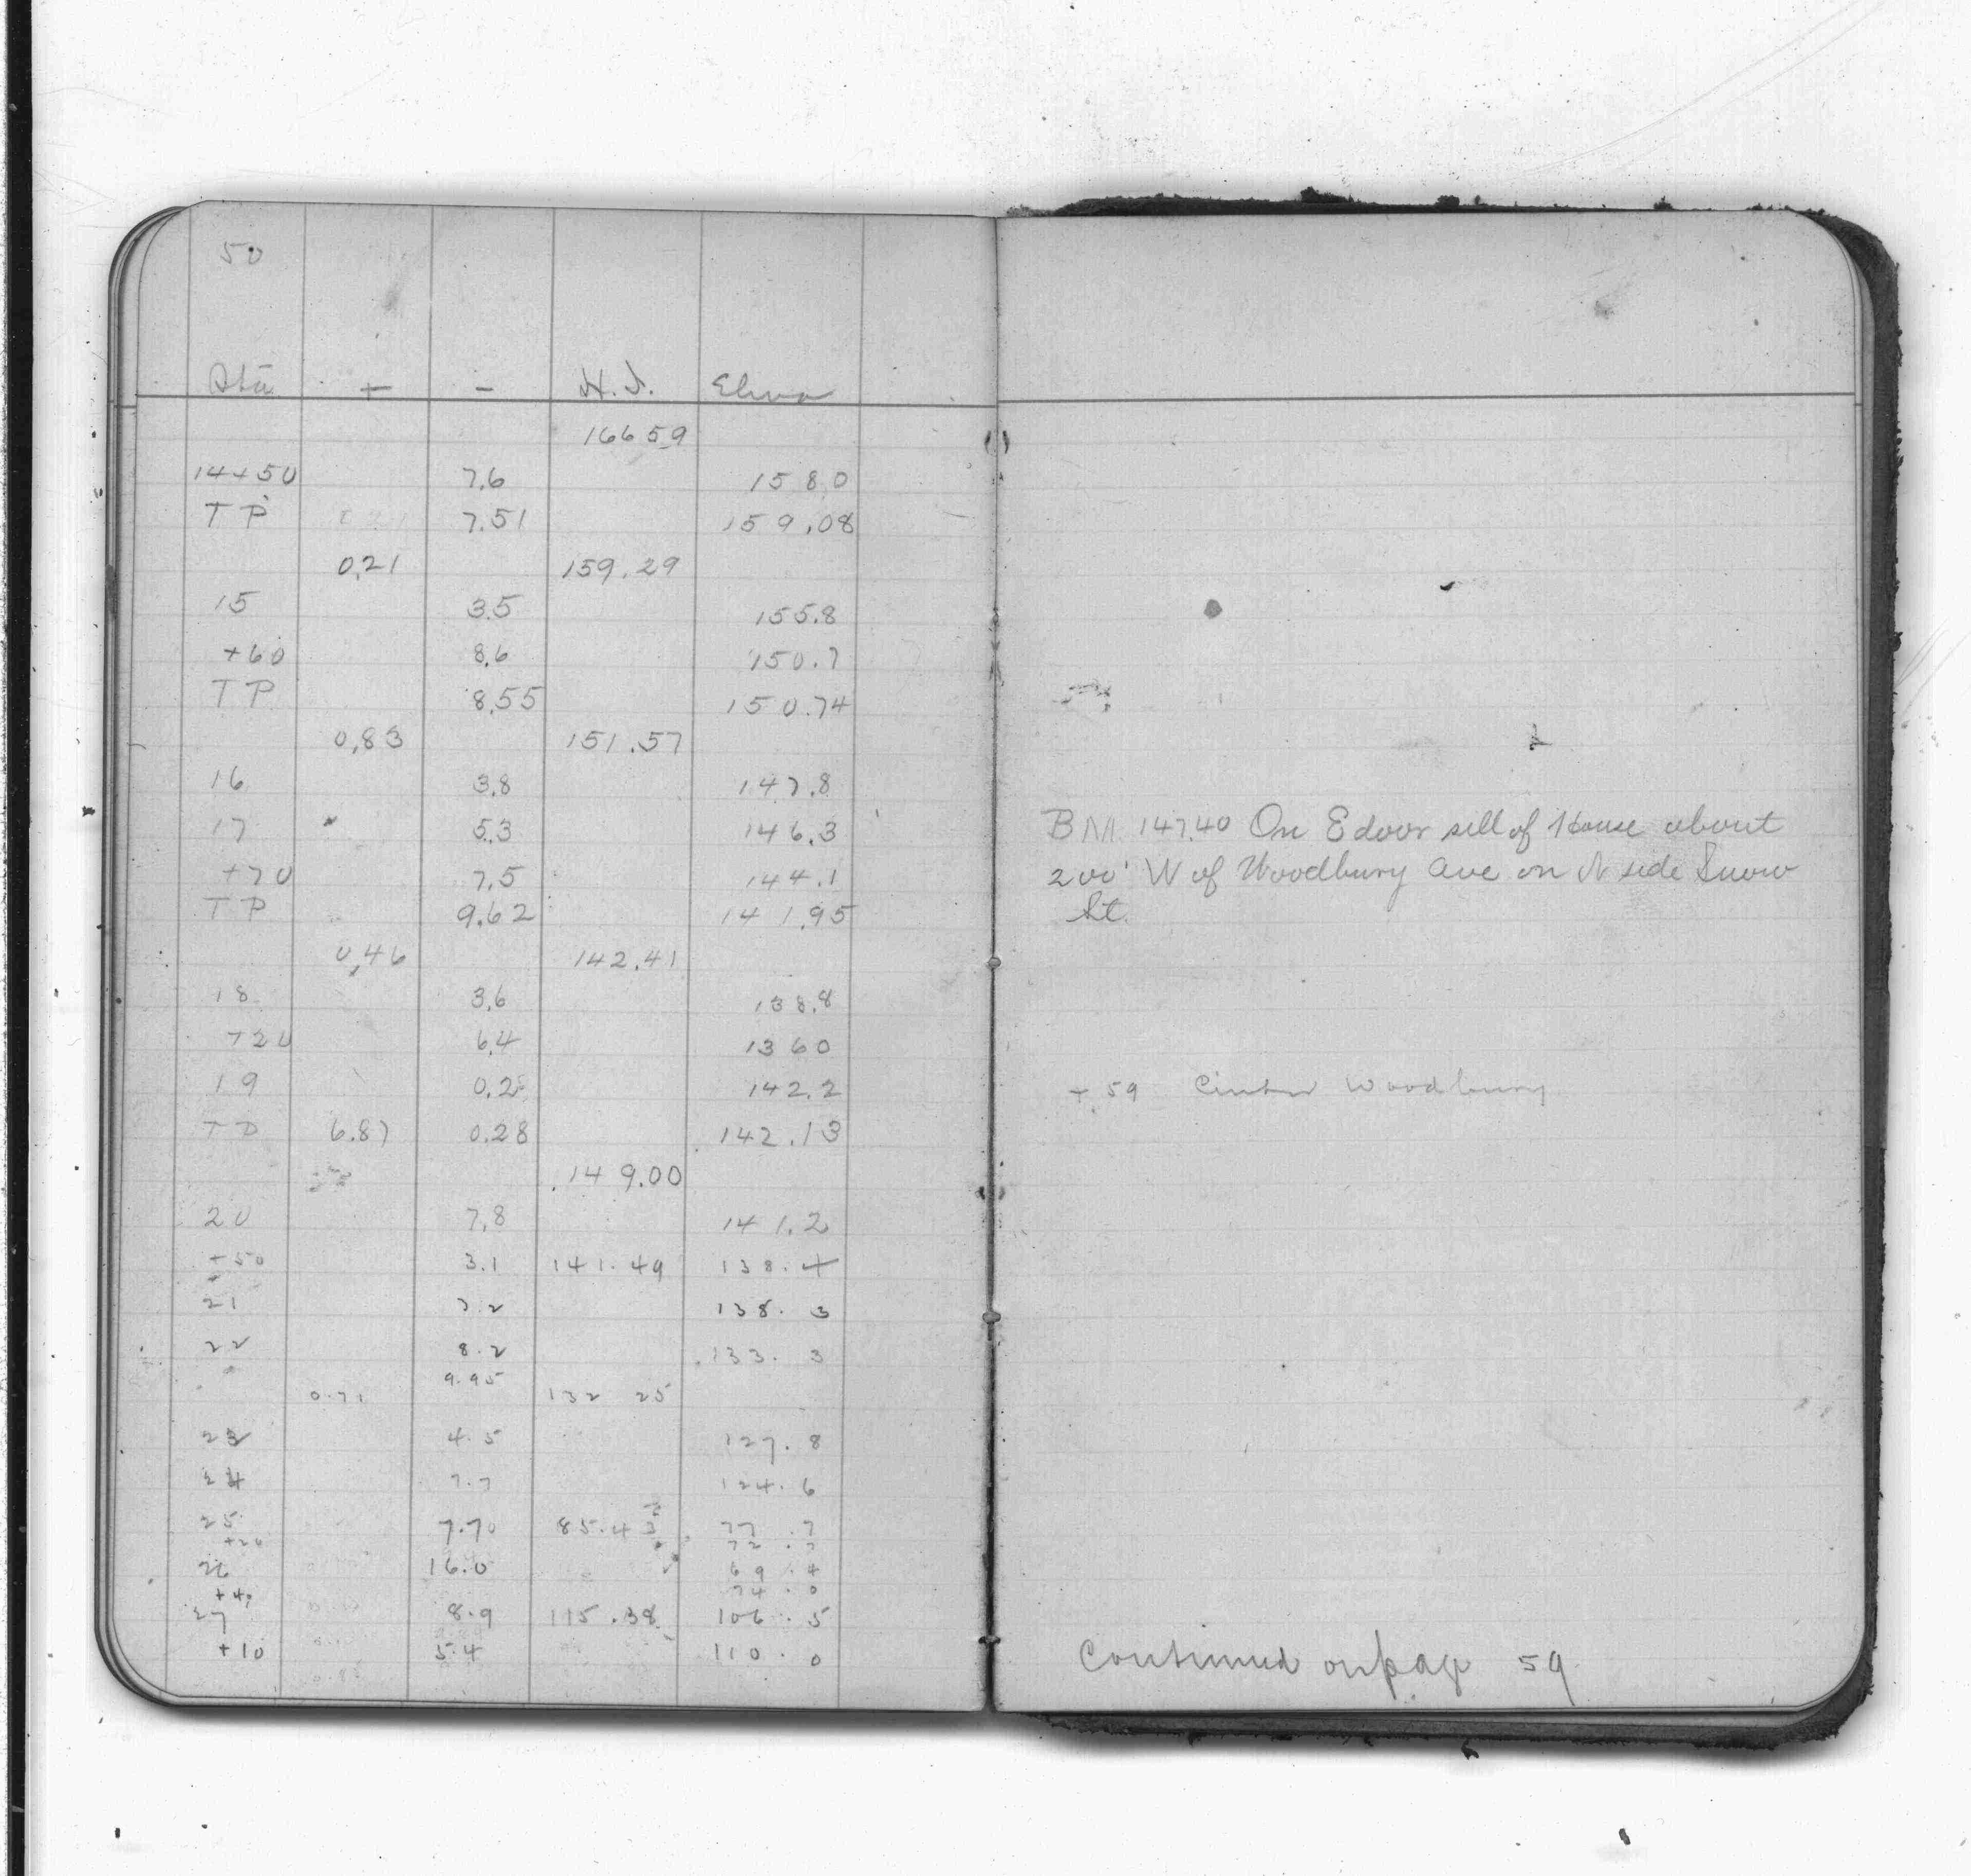 50
Sta + - H.I. Eleva
16659
14+50 7.6 158.0
TP 7.51 159.08
0.21 159.29
15 3.5 155.8
+60 8.6 150.7
TP 8.55 150.74
0.83 151.57
16 3.8 147.8
17 5.3 146.3
+70 7.5 144.1
TP 9.62 141.95
0.46 142.41
18 3.6 138.8
+20 6.4 1360
19 0.2 142.2
TP 6.87 0.28 142.13
149.00
20 7.8 141.2
+50 3.1 141.49 138.4
21 3.2 138.3
22 8.2 133.3
9.95
0.71 132 25
23 4.5 127.8
24 7.7 124.6
25 7.70 85.43 77.7
+20 72.7
26 16.0 69.4
+40 74.0
27 8.9 115.38 106.5
+10 5.4 110.0
BM. 147.40 On E door sill of House about
200' W of Woodbury Ave on N side Snow
St.
+59 Center Woodbury
Continued on page 59